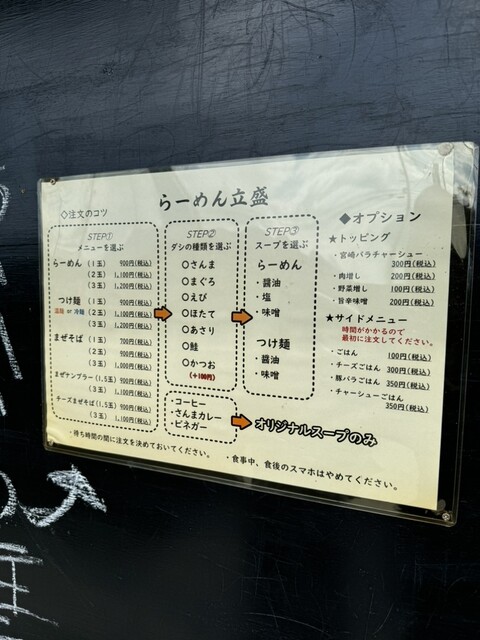 らーめん立盛
◇注文のコツ
STEP①
メニューを選ぶ
らーめん （1玉） 900円(税込)
（2玉） 1,100円(税込)
（3玉） 1,200円(税込)
つけ麺 （1玉） 900円(税込)
温麺 or 冷麺 （2玉） 1,100円(税込)
（3玉） 1,200円(税込)
まぜそば （1玉） 700円(税込)
（2玉） 900円(税込)
（3玉） 1,000円(税込)
まぜケンブラー（1.5玉） 900円(税込)
（3玉） 1,100円(税込)
チーズまぜそば（1.5玉） 900円(税込)
（3玉） 1,100円(税込)
STEP②
ダシの種類を選ぶ
○さんま
○まぐろ
○えび
○ほたて
○あさり
○鮭
○かつお
(+100円)
・コーヒー
・さんまカレー
・ビネガー
STEP③
スープを選ぶ
らーめん
・醤油
・塩
・味噌
つけ麺
・醤油
・味噌
オリジナルスープのみ
◆オプション
★トッピング
・宮崎バラチャーシュー
300円(税込)
・肉増し 200円(税込)
・野菜増し 100円(税込)
・旨辛味噌 200円(税込)
★サイドメニュー
時間がかかるので
最初に注文してください。
・ごはん 100円(税込)
・チーズごはん 300円(税込)
・豚バラごはん 350円(税込)
・チャーシューごはん
350円(税込)
・待ち時間の間に注文を決めておいてください。
・食事中、食後のスマホはやめてください。